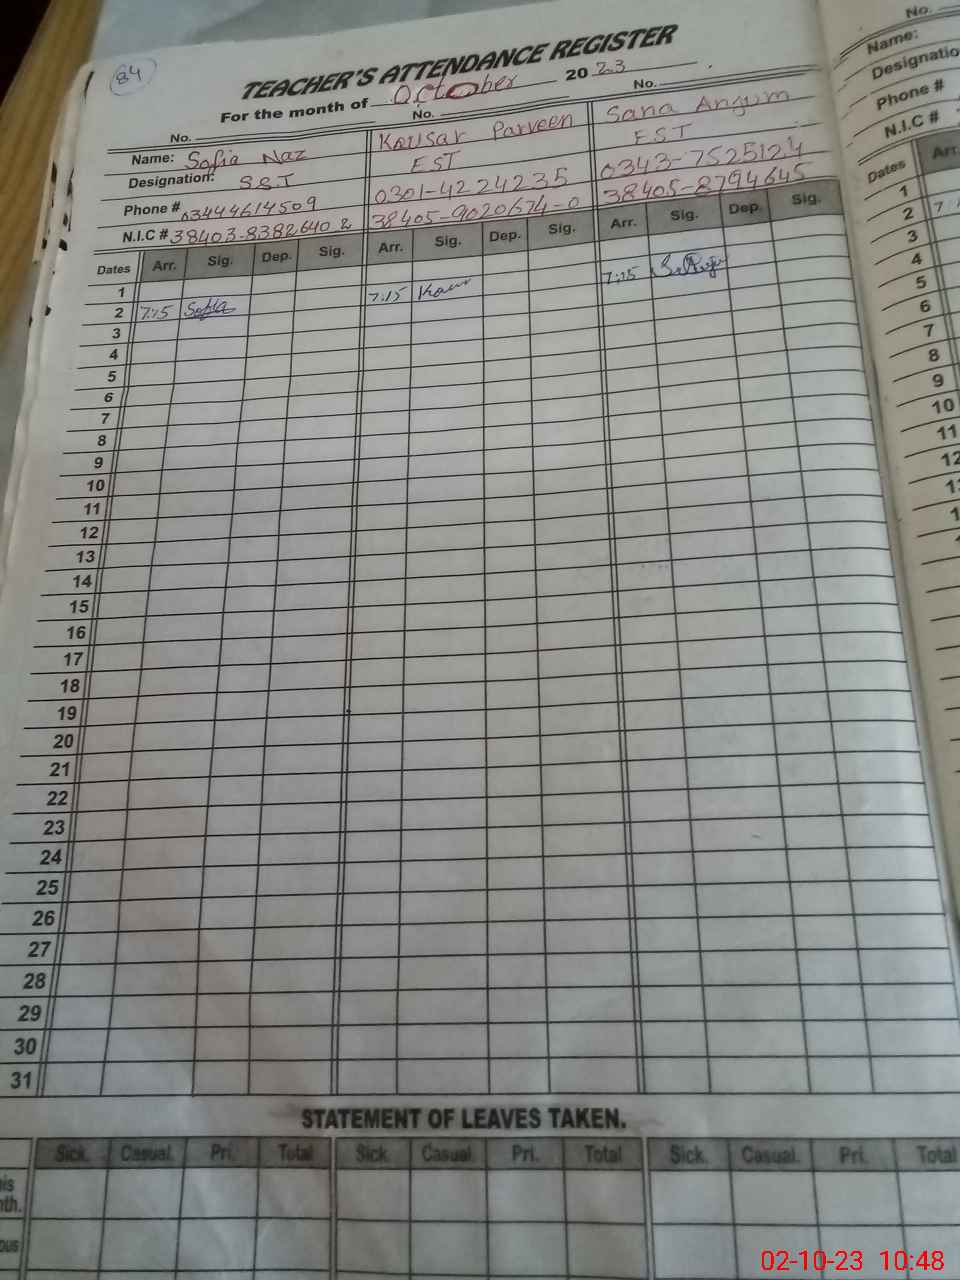 84
TEACHER'S ATTENDANCE REGISTER
For the month of October 2023
No. No. No.
Name: Sofia Naz Kousar Parveen Sana Anjum
Designation: S.S.T EST EST
Phone # 03444614509 0301-4224235 0343-7525124
N.I.C # 38403-8382640 2 38405-9020674-0 38405-8794645
Dates Arr. Sig. Dep. Sig. Arr. Sig. Dep. Sig. Arr. Sig. Dep. Sig.
1
2 7:15 Sofia 7:15 Kou 7:15
3
4
5
6
7
8
9
10
11
12
13
14
15
16
17
18
19
20
21
22
23
24
25
26
27
28
29
30
31
STATEMENT OF LEAVES TAKEN.
Sick. Casual. Pri. Total Sick. Casual. Pri. Total Sick. Casual. Pri. Total
his
nth.
ous
No.
Name:
Designatio
Phone #
N.I.C #
Dates Arr.
1
2 7
3
4
5
6
7
8
9
10
11
12
02-10-23 10:48